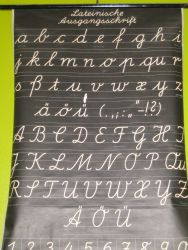 Lateinische
Ausgangsschrift
a b c d e f g h i
j k l m n o p q r
s ß t u v w x y z
ä ö ü (.,;:„"-!?)
A B C D E F G H I
J K L M N O P Qu
R S T U V W X Y Z
Ä Ö Ü
1 2 3 4 5 6 7 8 9 0